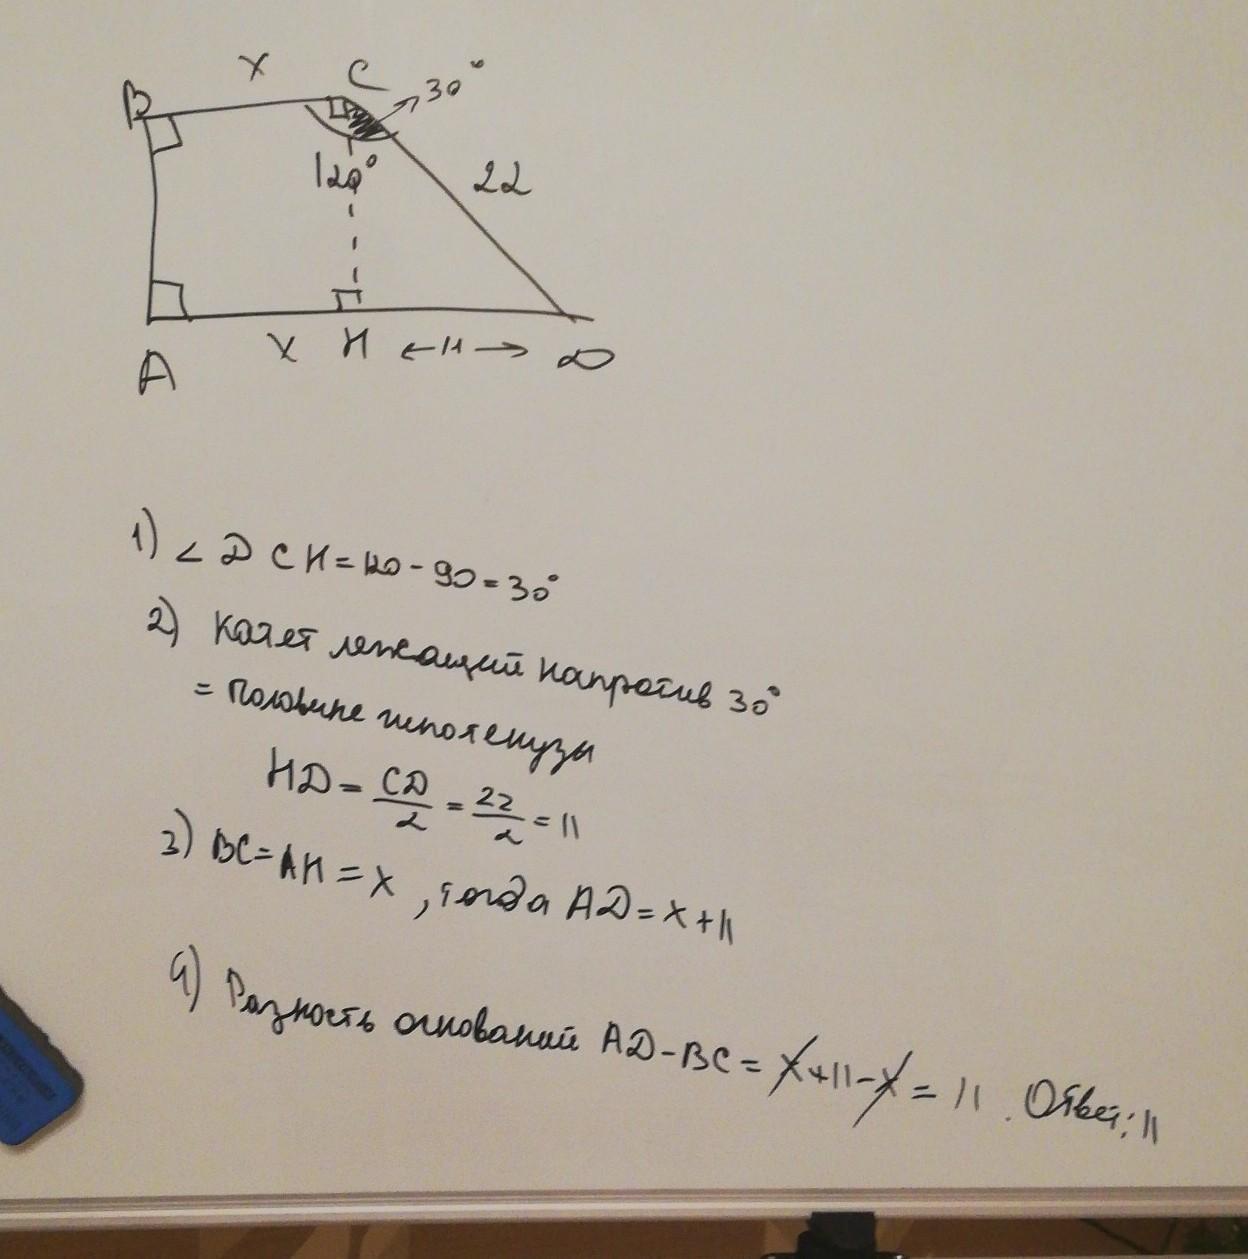 x
B
C
30°
120°
22
A
x
H
11
D
1) ∠ D C H = 120 - 90 = 30°
2) Катет лежащий напротив 30°
= половине гипотенузы
HD = CD/2 = 22/2 = 11
3) BC = AH = x , тогда AD = x + 11
4) Разность оснований AD - BC = x + 11 - x = 11 . Ответ: 11